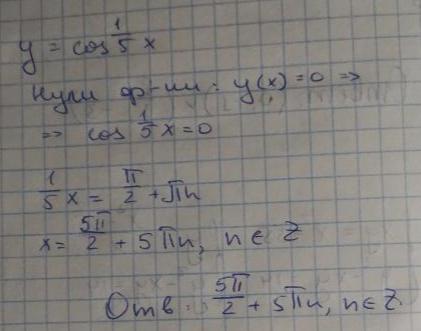 y = cos 1/5 x
Нули ф-ии: y(x)=0 =>
=> cos 1/5 x=0
1/5 x = π/2 + πn
x= 5π/2 + 5πn, n ∈ Z
Отв: 5π/2 + 5πn, n∈Z.